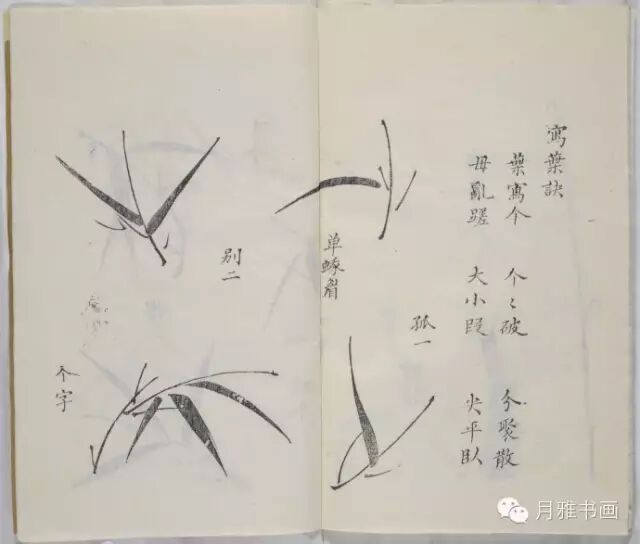 寫葉訣
葉寫个 个〻破 分聚散
毋亂蹉 大小段 尖平臥
孤一
单蛾眉
别二
个字
月雅书画